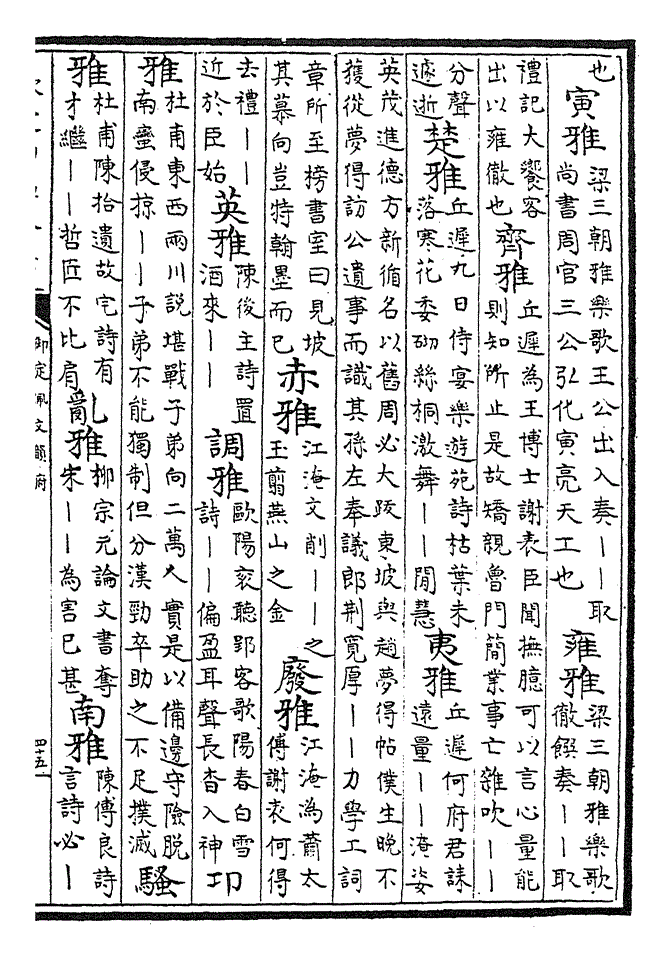 也寅雅梁三朝雅樂歌王公出入奏――取尚書周官三公弘化寅亮天工也雍雅梁三朝雅樂歌徹饌奏――取
禮記大饗客出以雍徹也齊雅丘遲為王博士謝表臣聞撫臆可以言心量能則知所止是故矯親魯門簡業事亡雜吹――
分聲遽逝楚雅丘遲九日侍宴樂遊苑詩枯葉未落寒花委砌絲桐激舞――閒慧夷雅丘遲何府君誄遠量――淹姿
英茂進德方新循名以舊周必大跋東坡與趙夢得帖僕生晚不獲從夢得訪公遺事而識其孫左奉議郎荆寬厚――力學工詞
章所至榜書室曰見坡其慕向豈特翰墨而已赤雅江淹文削――之玉翦燕山之金廢雅江淹為蕭太傅謝表何得
去禮――近於臣始英雅陳後主詩置酒來――調雅歐陽衮聽郢客歌陽春白雪詩――偏盈耳聲長杳入神卭
雅杜甫東西兩川說堪戰子弟向二萬人實是以備邊守險脱南蠻侵掠――子弟不能獨制但分漢勁卒助之不足撲滅騷
雅杜甫陳拾遺故宅詩有才繼――哲匠不比肩亂雅柳宗元論文書奪宋――為害已甚南雅陳傅良詩言詩必―
御定佩文韻府
四十五